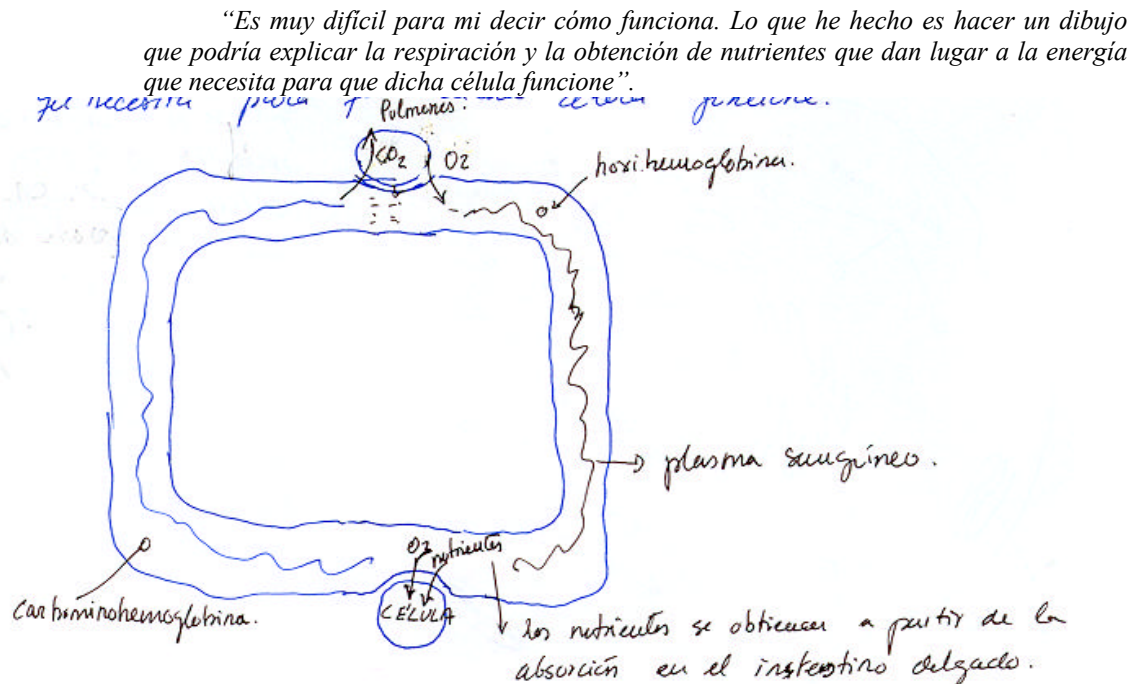 “Es muy difícil para mi decir cómo funciona. Lo que he hecho es hacer un dibujo
que podría explicar la respiración y la obtención de nutrientes que dan lugar a la energía
que necesita para que dicha célula funcione”.
necesita para célula funcione.
Pulmones.
CO2 O2
hoxihemoglobina.
plasma sanguíneo.
O2 nutrientes
CÉLULA
carbominohemoglobina.
los nutrientes se obtienen a partir de la
absorción en el instestino delgado.